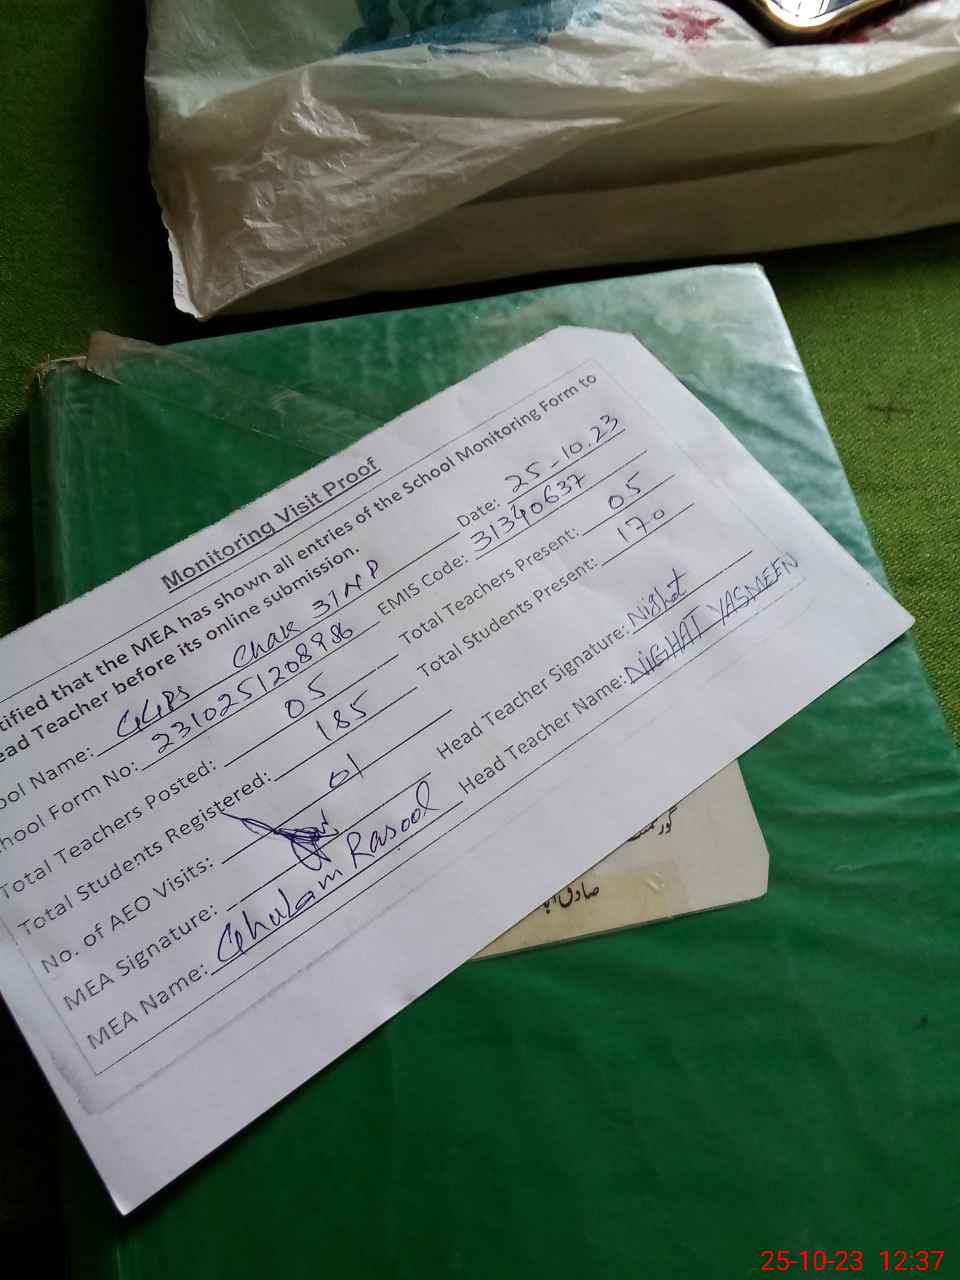 Monitoring Visit Proof
tified that the MEA has shown all entries of the School Monitoring Form to
ead Teacher before its online submission.
ool Name: GGPS Chak 31NP Date: 25-10.23
hool Form No: 2310251208986 EMIS Code: 31340637
Total Teachers Posted: 05 Total Teachers Present: 05
Total Students Registered: 185 Total Students Present: 170
No. of AEO Visits: 01
MEA Signature: Head Teacher Signature: Nighat
MEA Name: Ghulam Rasool Head Teacher Name: NIGHAT YASMEEN
25-10-23 12:37